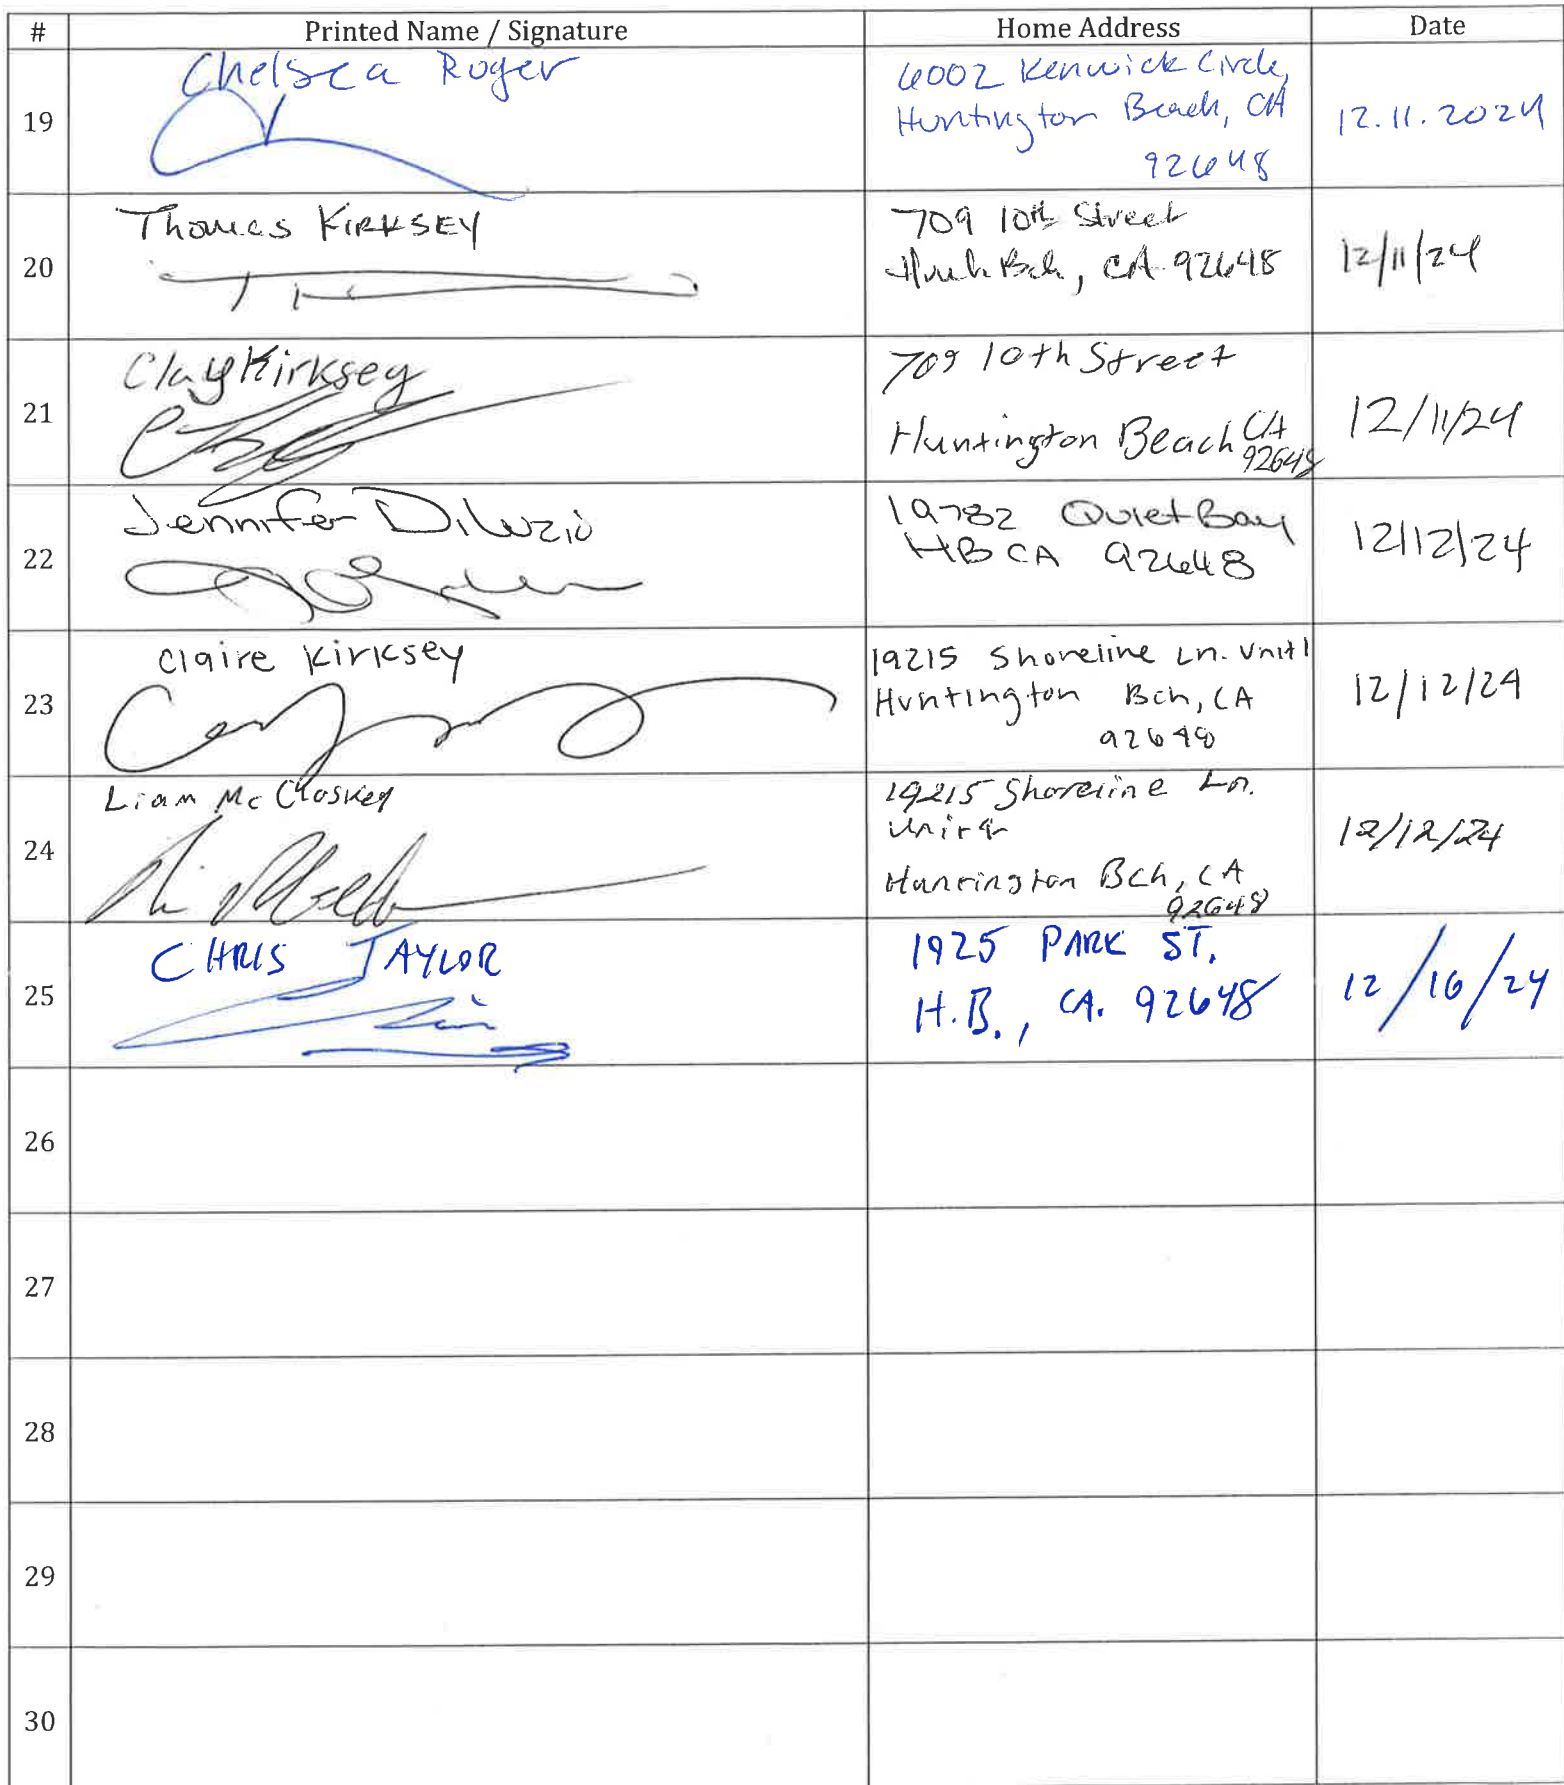 # Printed Name / Signature Home Address Date
19 Chelsea Roger 6002 Kenwick Circle,
Huntington Beach, CA 12.11.2024
92648
20 Thomas KIRKSEY 709 10th Street
CA 92648 12/11/24
21 Clay Kirksey 709 10th Street
Huntington Beach CA 12/11/24
92648
22 Jennifer DiLuzio 19782 Quiet Bay
HB CA 92648 12/12/24
23 Claire Kirksey 19215 Shoreline Ln. Unit 1
Huntington Bch, CA 12/12/24
92648
24 Liam McCloskey 19215 Shoreline Ln.
Unit
Huntington Bch, CA 12/12/24
92648
25 CHRIS TAYLOR 1925 PARK ST.
H.B., CA. 92648 12/16/24
26
27
28
29
30